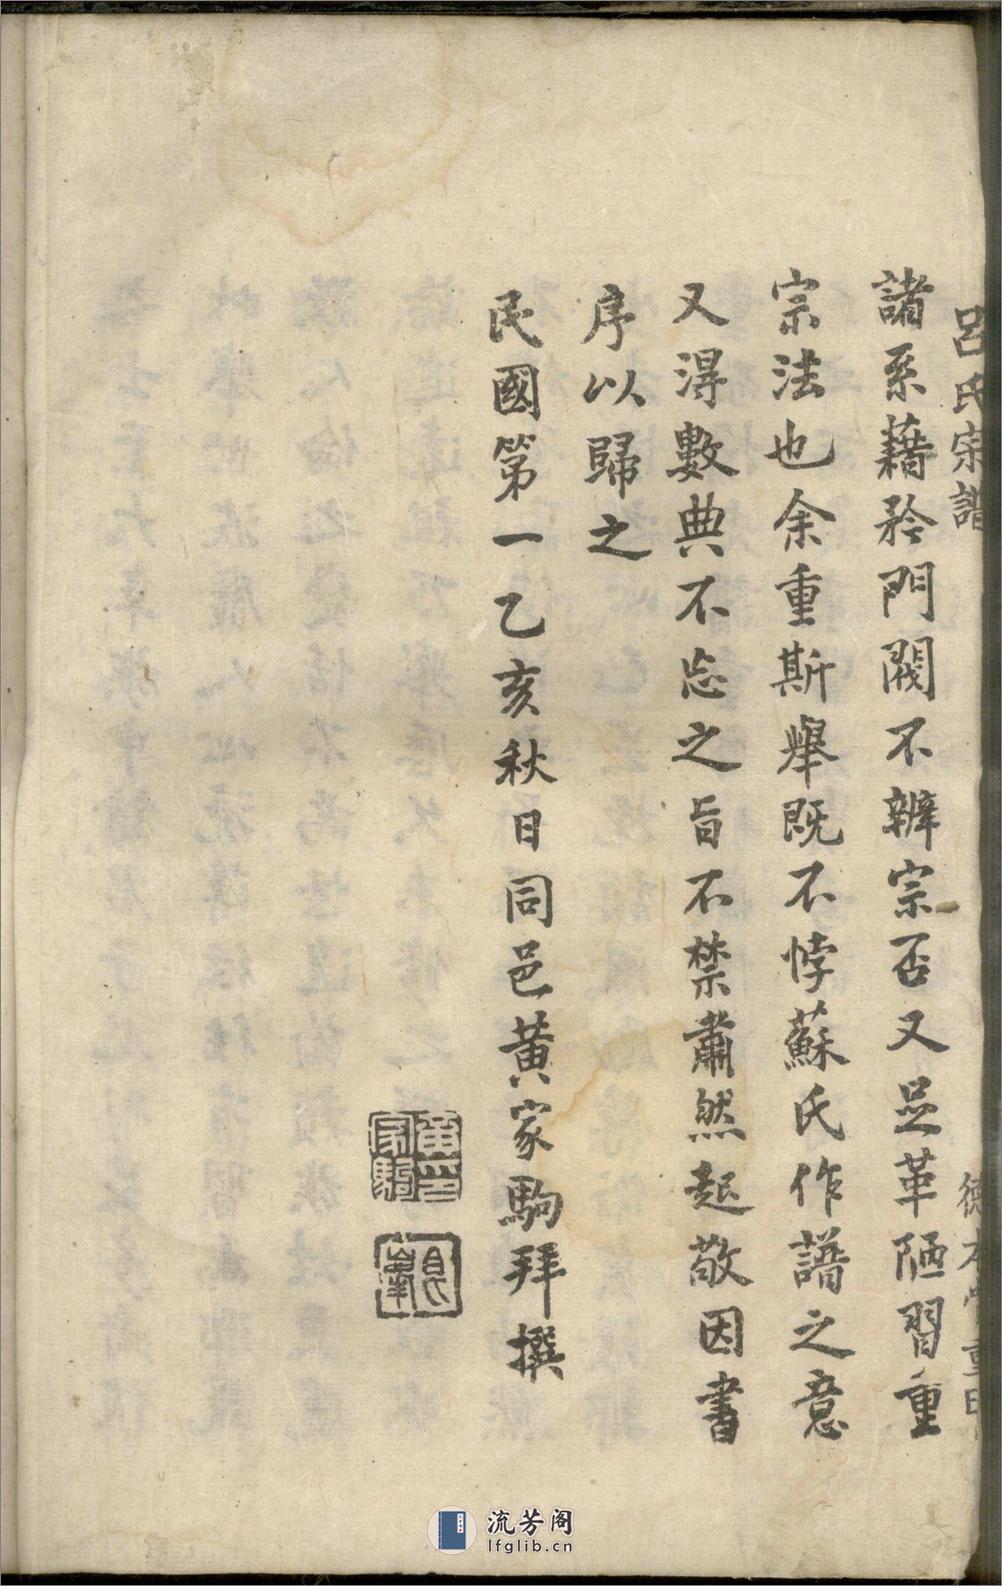 呂氏宗譜
德本堂重印
諸系藉矜門閥不辨宗否又足革陋習重
宗法也余重斯舉既不悖蘇氏作譜之意
又得數典不忘之旨不禁肅然起敬因書
序以歸之
民國第一乙亥秋日同邑黃家駒拜撰
黃印家駒
流芳阁
lfglib.cn